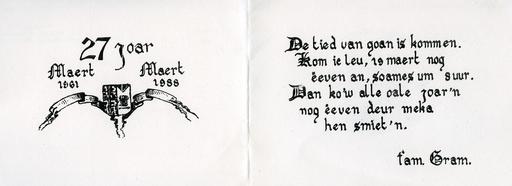 27 joar
Maert Maert
1961 1988
De tied van goan is kommen.
Kom ie leu, is maert nog
éeven an, soames um 8 uur.
Dan ko'w alle oale joar'n
nog éeven deur meka
hen smiet'n.
fam. Gram.